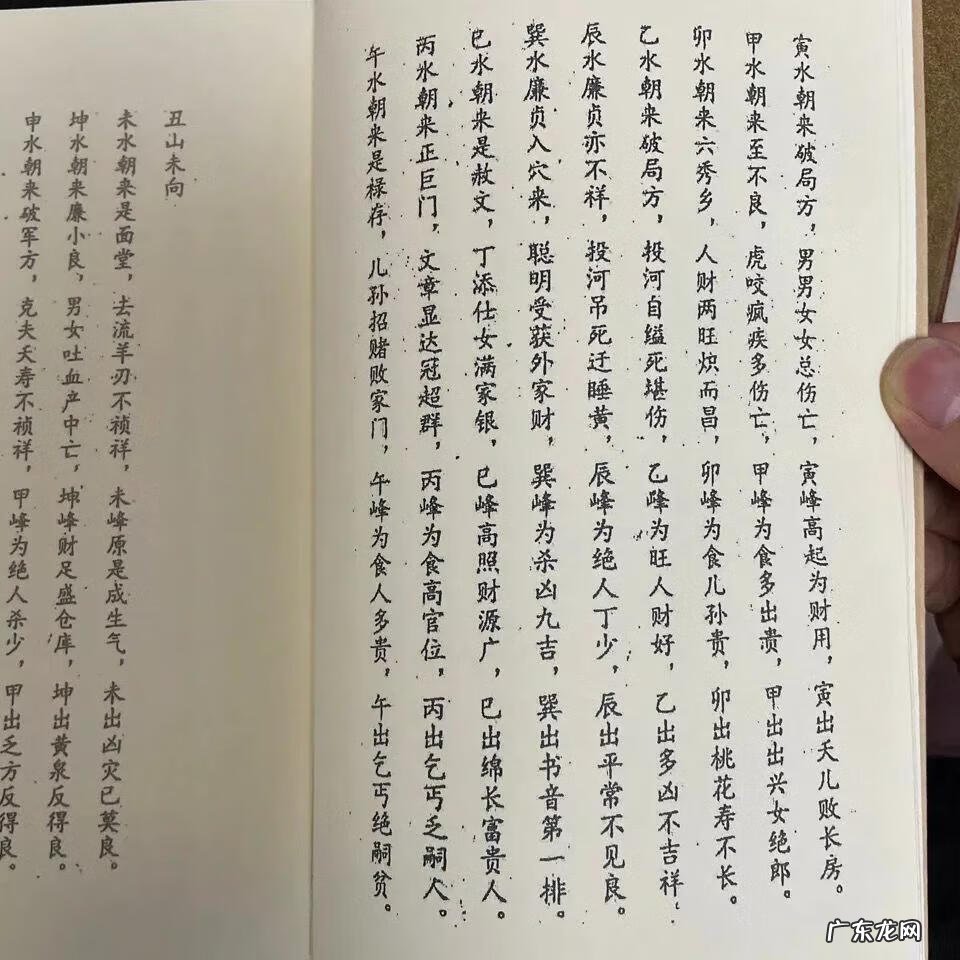 寅水朝来破局方，男男女女总伤亡，寅峰高起为财用，寅出夭儿败长房。
甲水朝来至不良，虎咬疯疾多伤亡，甲峰为食多出溃，甲出出兴女绝郎。
卯水朝来六秀乡，人财两旺炽而昌，卯峰为食儿孙贵，卯出桃花寿不长。
乙水朝来破局方，投河自缢死堪伤，乙峰为旺人财好，乙出多凶不吉祥。
辰水廉贞亦不祥，投河吊死迂睡黄，辰峰为绝人丁少，辰出平常不见良。
巽水廉贞入穴来，聪明受获外家财，巽峰为杀凶九吉，巽出书音第一排。
巳水朝来是赦文，丁添仕女满家银，巳峰高照财源广，巳出绵长富贵人。
丙水朝来正巨门，文章显达冠超群，丙峰为食高官位，丙出乞丐乏嗣人。
午水朝来是禄存，儿孙招赌败家门，午峰为食人多贵，午出乞丐绝嗣贫。
丑山未向
未水朝来是面堂，去流羊刃不祯祥，未峰原是成生气，未出凶灾已莫良。
坤水朝来廉小良，男女吐血产中亡，坤峰财足盛仓库，坤出黄泉反得良。
申水朝来破军方，克夫夭寿不祯祥，甲峰为绝人杀少，甲出乏方反得良。
广东龙网